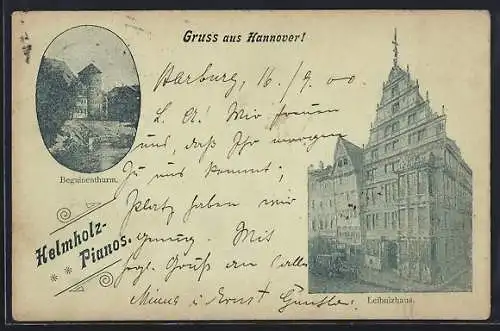 Gruss aus Hannover!
Harburg, 16/9 00
L. A! Wir freuen
uns, daß Ihr morgen
zu uns kommt;
Platz haben wir
genug. Mit
hzgl. Gruß an alle
Minna u. Ernst
Beguinenthurm.
Helmholz-
Pianos.
Leibnizhaus.